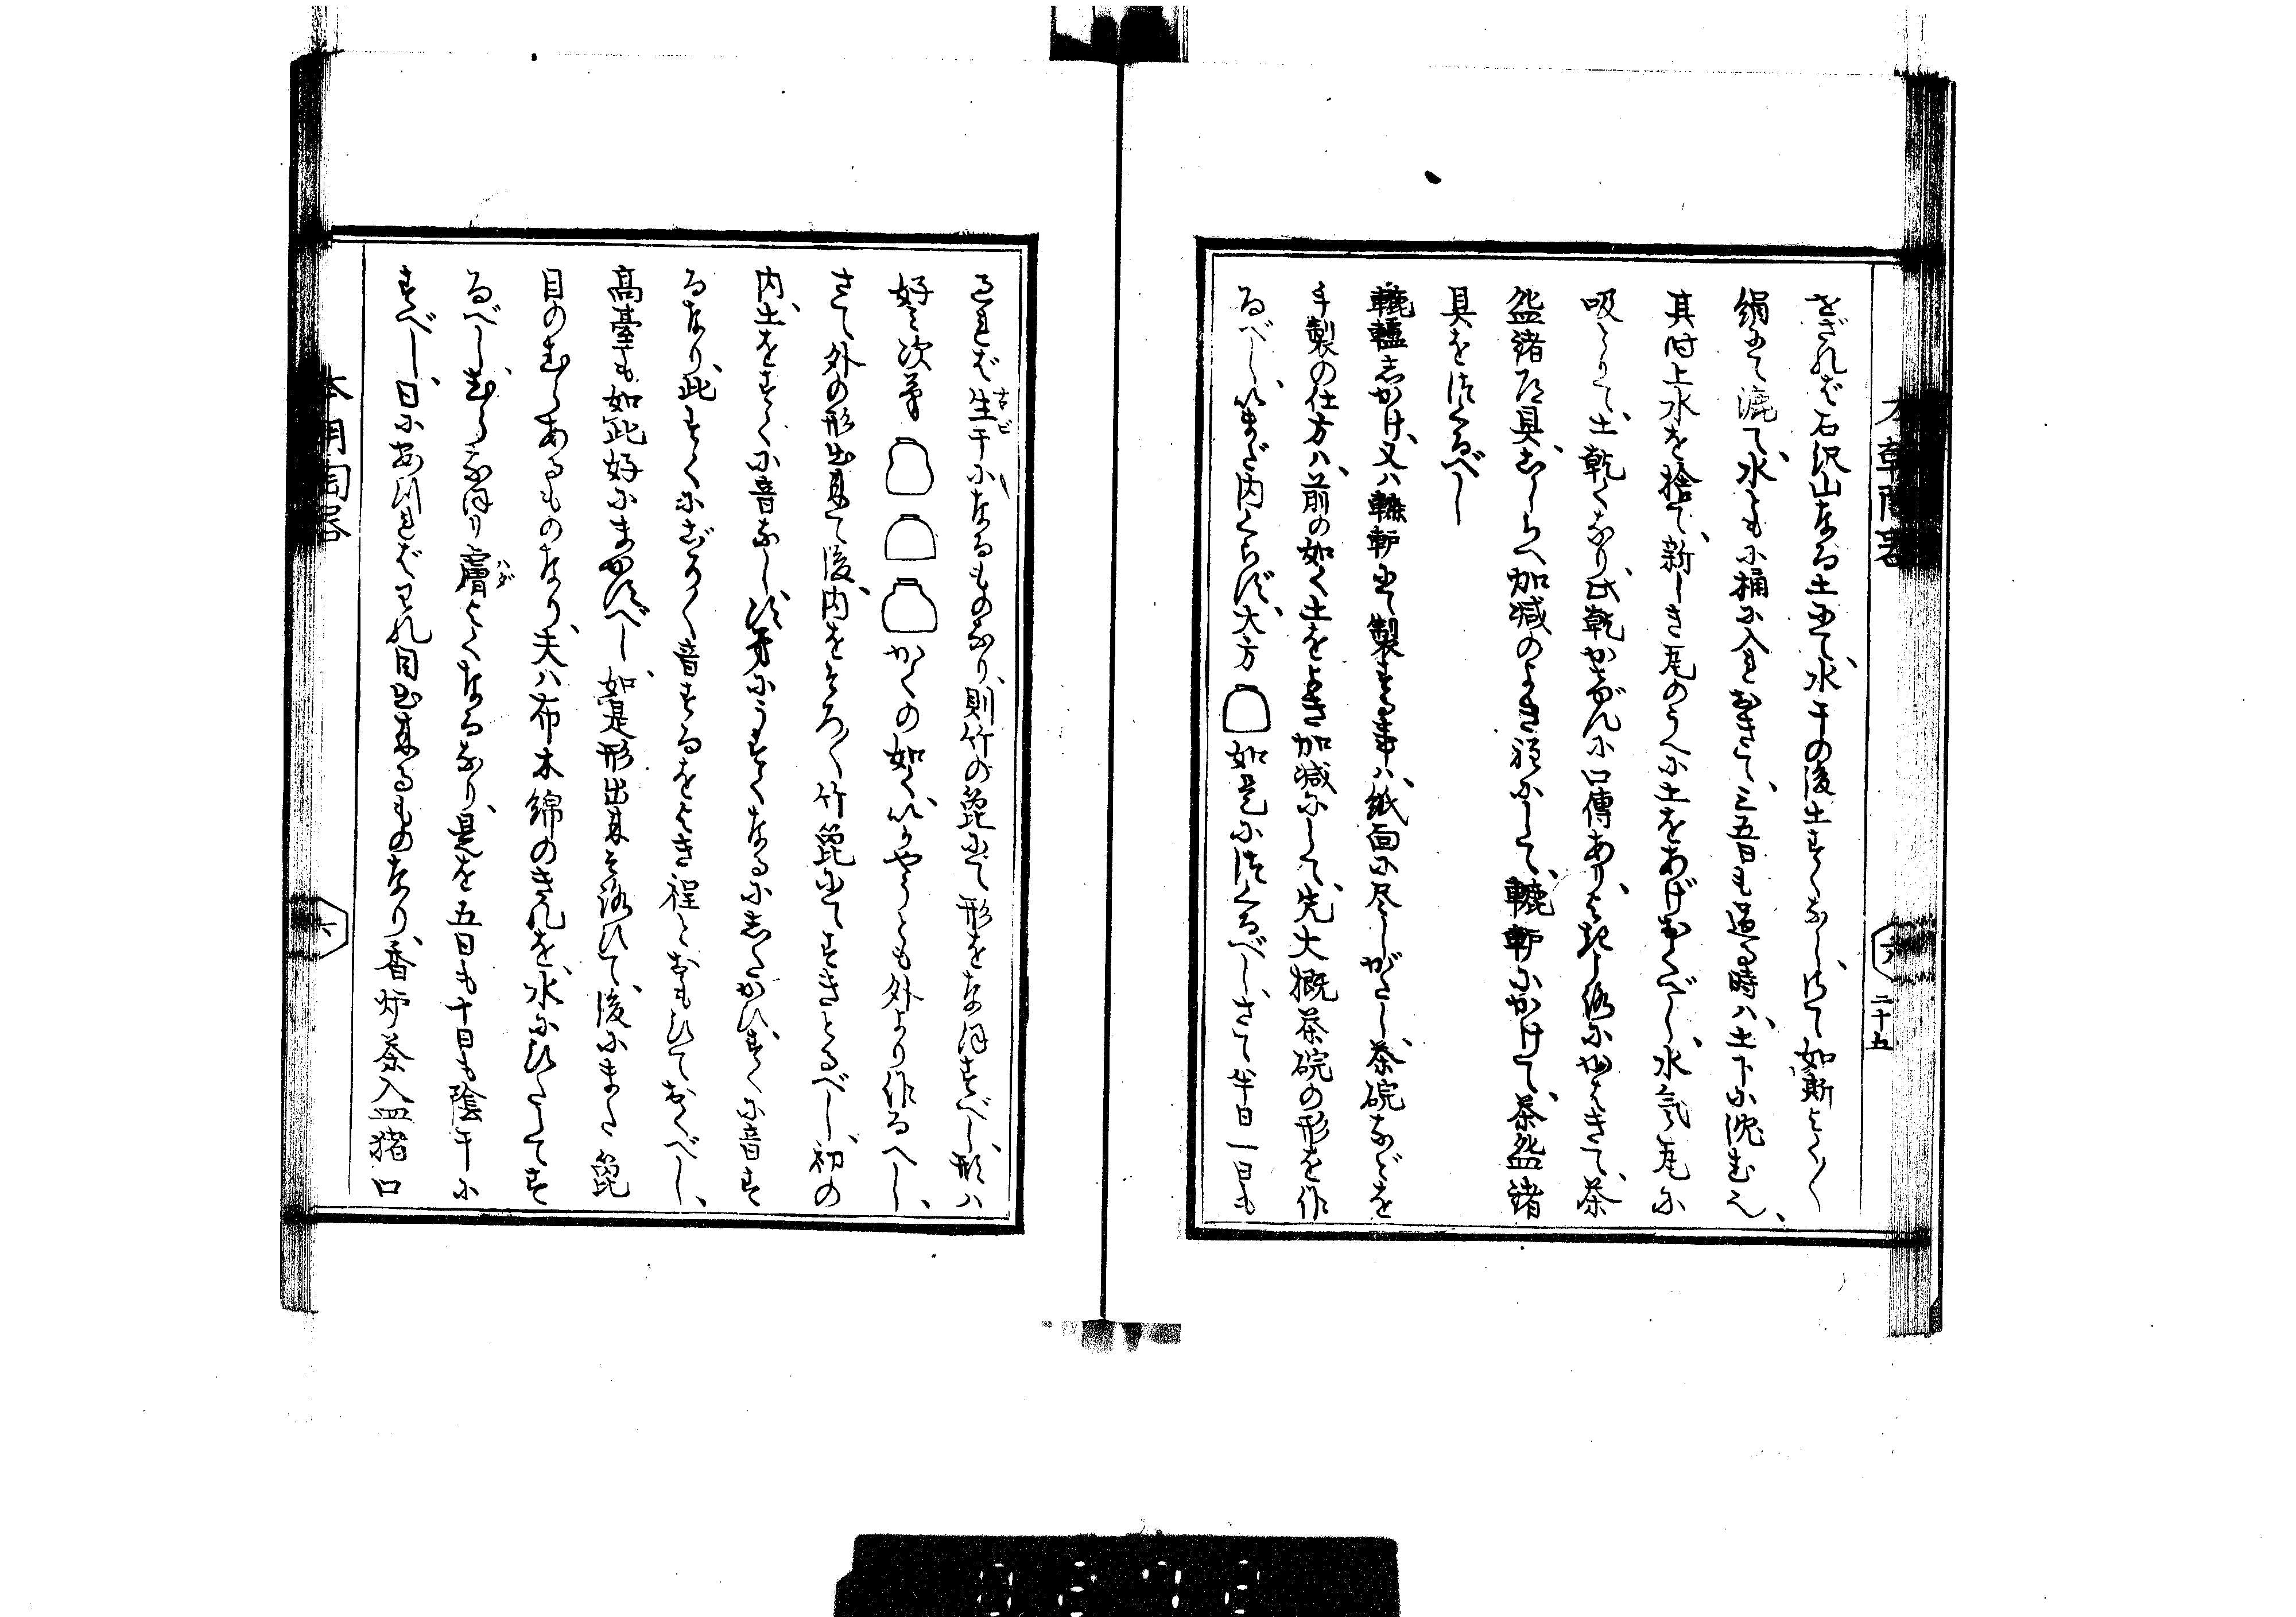 せざれば石沢山なる土にて、水干の後土すくなし、以て如斯よく〱
絹にて漉て、水ともに桶に入れおきて、三五日も過る時ハ、土下に沈むん、
其時上水を捨て、新しき瓦のうへに土をあげおくべし、水気瓦に
吸とりて、土乾くなり、此乾かげんに口傳あり、
盌諸道具、こしらへ加減のよき程にして、轆轤にかけて、茶盌諸
具をつくるべし
轆轤しかけ、又ハ轆轤にて製する事ハ、紙面に尽しがたし、茶碗などを
手製の仕方ハ、前の如く土をよき加減にして、先大概茶碗の形を作
るべし、いまだ内くらず、大方如是につくるべし、さて半日一日も
過れば生干になるものなり、則竹の篦にて形をなほすべし、形ハ
好ミ次第かくの如く、いかやうとも外より作るへし、
さて外の形出来て後、内をそろ〱竹篦にてすきとるべし、初の
内、土をすくに音なし、次第にうすくなるにしたがひ、すくに音す
るなり、此すくにさく〱音するをよき程とおもひておくべし、
高臺も如此好にまかすべし、如是形出来そろひて、後にまた篦
目のむらあるものなり、夫ハ布木綿のきれを、水にひたしてす
るべし、むらなほり膚よくなるなり、是を五日も十日も陰干に
すべし、日にあつればわれ目出来るものなり、香炉茶入皿猪口
本朝陶器
六
二十五